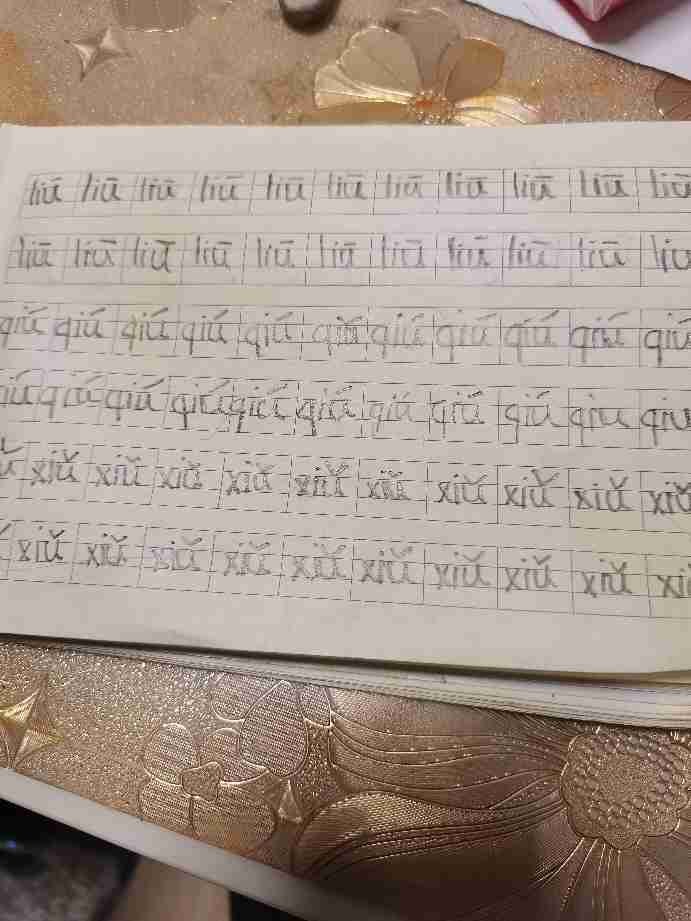 liū liū liū liū liū liū liū liū liū liū liū
liū liū liū liū liū liū liū liū liū liū liu
qiú qiú qiú qiú qiú qiú qiú qiú qiú qiú qiú
iú qiú qiú qiú qiú qiú qiú qiú qiú qiu qiu
ǔ xiǔ xiǔ xiǔ xiǔ xiǔ xiǔ xiǔ xiǔ xiǔ xiǔ
xiǔ xiǔ xiǔ xiǔ xiǔ xiǔ xiǔ xiǔ xiǔ xi